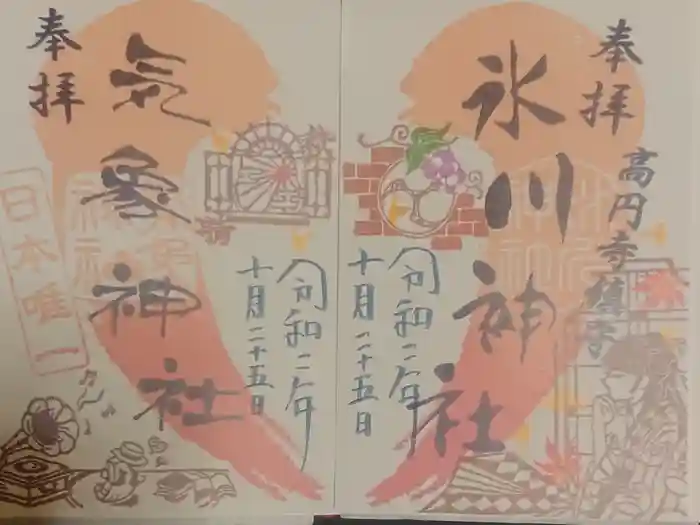 奉拝
高円寺鎮守
氷川神社
令和二年
十月二十五日
奉拝
気象神社
日本唯一
令和二年
十月二十五日